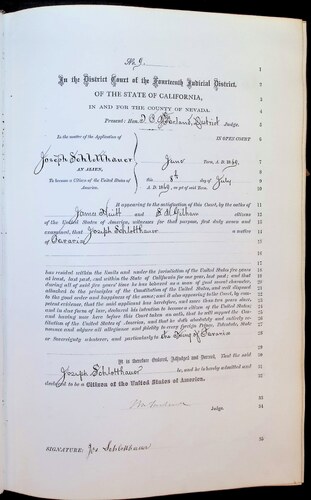 No 9.
In the District Court of the Fourteenth Judicial District,
OF THE STATE OF CALIFORNIA,
IN AND FOR THE COUNTY OF NEVADA.
Present: Hon. T. B. McFarland, District Judge.
In the matter of the Application of
IN OPEN COURT
Joseph Schlotthauer
AN ALIEN,
June Term, A. D. 1865.
To become a Citizen of the United States of America.
this 8th day of July
A. D. 1865, as yet of said Term.
It appearing to the satisfaction of this Court, by the oaths of
James Hewitt and citizens
of the United States of America, witnesses for that purpose, first duly sworn and
examined, that Joseph Schlotthauer a native
of Bavaria
has resided within the limits and under the jurisdiction of the United States five years
at least, last past, and within the State of California for one year, last past; and that
during all of said five years' time he has behaved as a man of good moral character,
attached to the principles of the Constitution of the United States, and well disposed
to the good order and happiness of the same; and it also appearing to the Court, by com-
petent evidence, that the said applicant has heretofore, and more than two years since,
and in due form of law, declared his intention to become a citizen of the United States;
and having now here before this Court taken an oath, that he will support the Con-
stitution of the United States of America, and that he doth absolutely and entirely re-
nounce and abjure all allegiance and fidelity to every foreign Prince, Potentate, State
or Sovereignty whatever, and particularly to the King of Bavaria
It is therefore Ordered, Adjudged and Decreed, That the said
Joseph Schlotthauer be, and he is hereby admitted and
declared to be a Citizen of the United States of America.
Judge.
SIGNATURE: Jos Schlotthauer